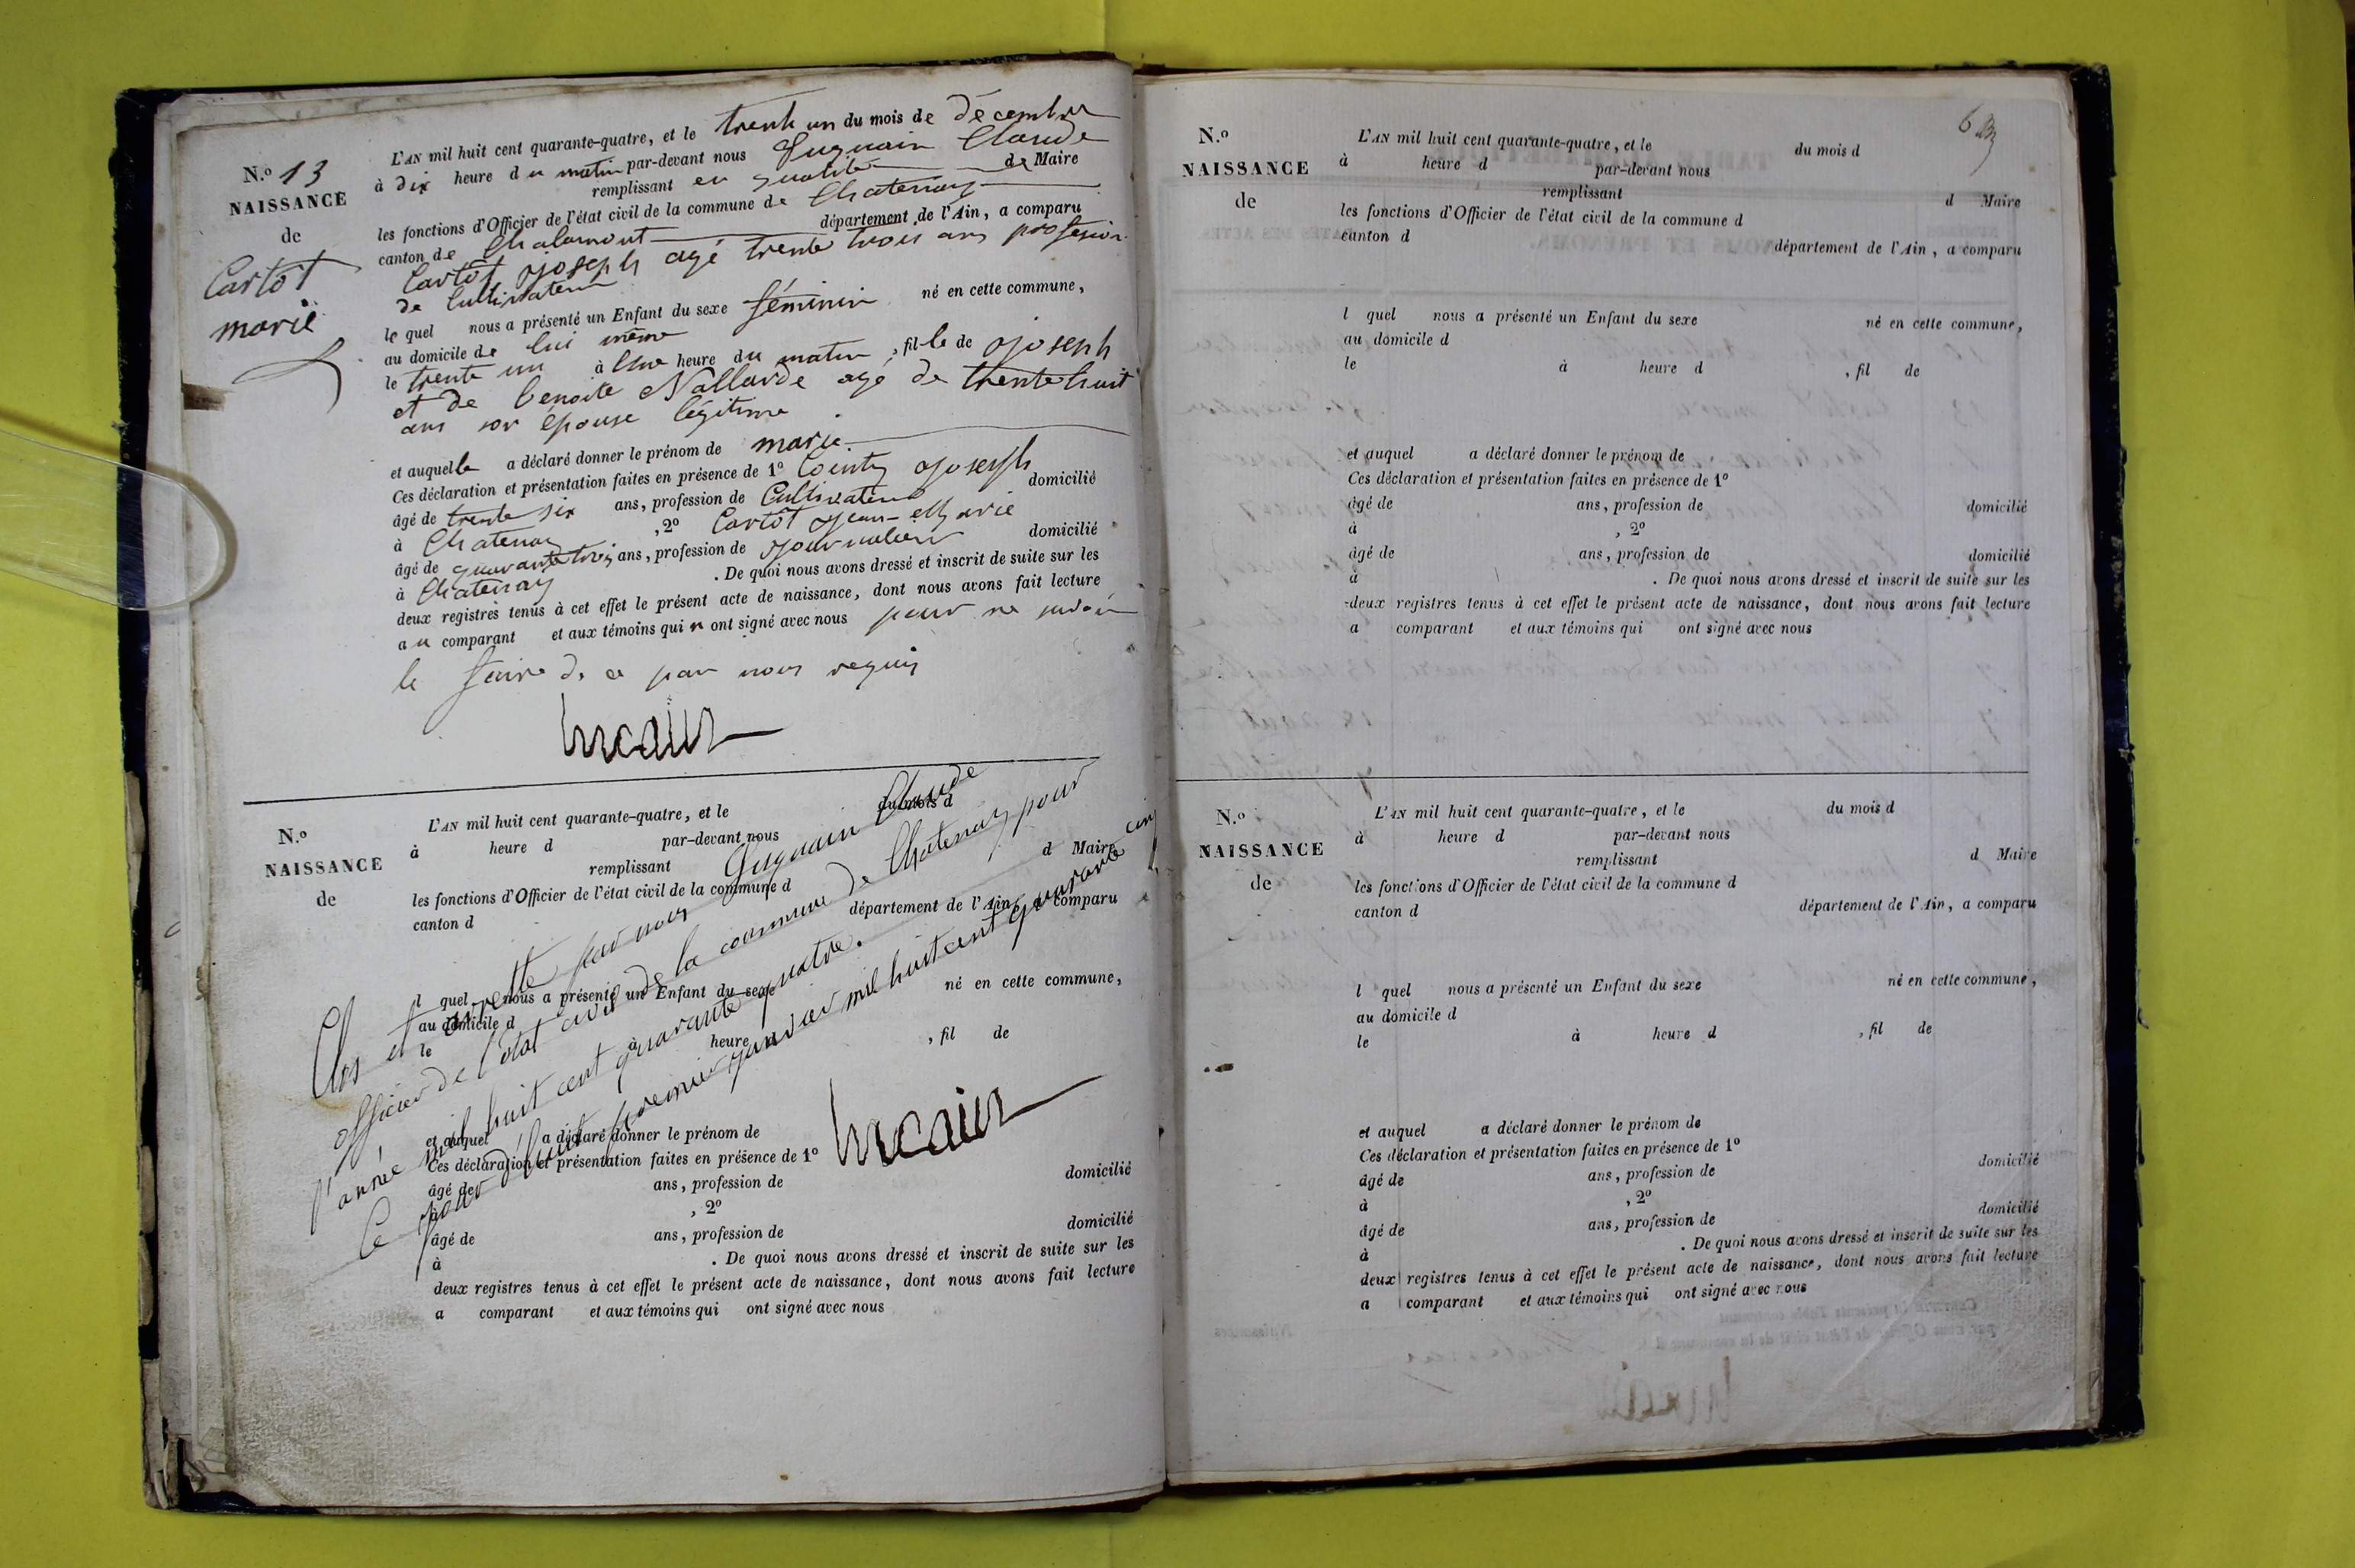 N.o 13
NAISSANCE
de
Cartot
marie
L'AN mil huit cent quarante-quatre, et le trente un du mois de décembre
à dix heure du matin par-devant nous Claude
remplissant en qualité de Maire
les fonctions d'Officier de l'état civil de la commune de Chatenay
canton de Chalamont département de l'Ain, a comparu
Cartot joseph agé trente trois ans profession
de Cultivateur
le quel nous a présenté un Enfant du sexe féminin né en cette commune,
au domicile de lui même
le trente un à Une heure du matin, fille de joseph
et de benoite Nallarde agé de trente huit
ans son épouse légitime
et auquelle a déclaré donner le prénom de marie
Ces déclaration et présentation faites en présence de 1º joseph
âgé de trente six ans, profession de Cultivateur domicilié
à Chatenay, 2º Cartot jean-Marie
âgé de quarante trois ans, profession de journalier domicilié
à Chatenay. De quoi nous avons dressé et inscrit de suite sur les
deux registres tenus à cet effet le présent acte de naissance, dont nous avons fait lecture
au comparant et aux témoins qui n ont signé avec nous pour ne savoir
le faire de ce par nous requis
N.o
NAISSANCE
de
L'AN mil huit cent quarante-quatre, et le du mois d
à heure d par-devant nous
remplissant d Maire
les fonctions d'Officier de l'état civil de la commune d
canton d département de l'Ain, a comparu
l quel nous a présenté un Enfant du sexe né en cette commune,
au domicile d
le à heure d , fil de
et auquel a déclaré donner le prénom de
Ces déclaration et présentation faites en présence de 1º
âgé de ans, profession de domicilié
à , 2º
âgé de ans, profession de domicilié
à . De quoi nous avons dressé et inscrit de suite sur les
deux registres tenus à cet effet le présent acte de naissance, dont nous avons fait lecture
a comparant et aux témoins qui ont signé avec nous
Clos et arrette par nous Claude
officier de l'état civil de la commune de Chatenay pour
l'année mil huit cent quarante quatre.
Ce jour d'huit premier janvier mil huit cent quarante cinq
6
N.o
NAISSANCE
de
L'AN mil huit cent quarante-quatre, et le du mois d
à heure d par-devant nous
remplissant d Maire
les fonctions d'Officier de l'état civil de la commune d
canton d département de l'Ain, a comparu
l quel nous a présenté un Enfant du sexe né en cette commune,
au domicile d
le à heure d , fil de
et auquel a déclaré donner le prénom de
Ces déclaration et présentation faites en présence de 1º
âgé de ans, profession de domicilié
à , 2º
âgé de ans, profession de domicilié
à . De quoi nous avons dressé et inscrit de suite sur les
deux registres tenus à cet effet le présent acte de naissance, dont nous avons fait lecture
a comparant et aux témoins qui ont signé avec nous
N.o
NAISSANCE
de
L'AN mil huit cent quarante-quatre, et le du mois d
à heure d par-devant nous
remplissant d Maire
les fonctions d'Officier de l'état civil de la commune d
canton d département de l'Ain, a comparu
l quel nous a présenté un Enfant du sexe né en cette commune,
au domicile d
le à heure d , fil de
et auquel a déclaré donner le prénom de
Ces déclaration et présentation faites en présence de 1º
âgé de ans, profession de domicilié
à , 2º
âgé de ans, profession de domicilié
à . De quoi nous avons dressé et inscrit de suite sur les
deux registres tenus à cet effet le présent acte de naissance, dont nous avons fait lecture
a comparant et aux témoins qui ont signé avec nous